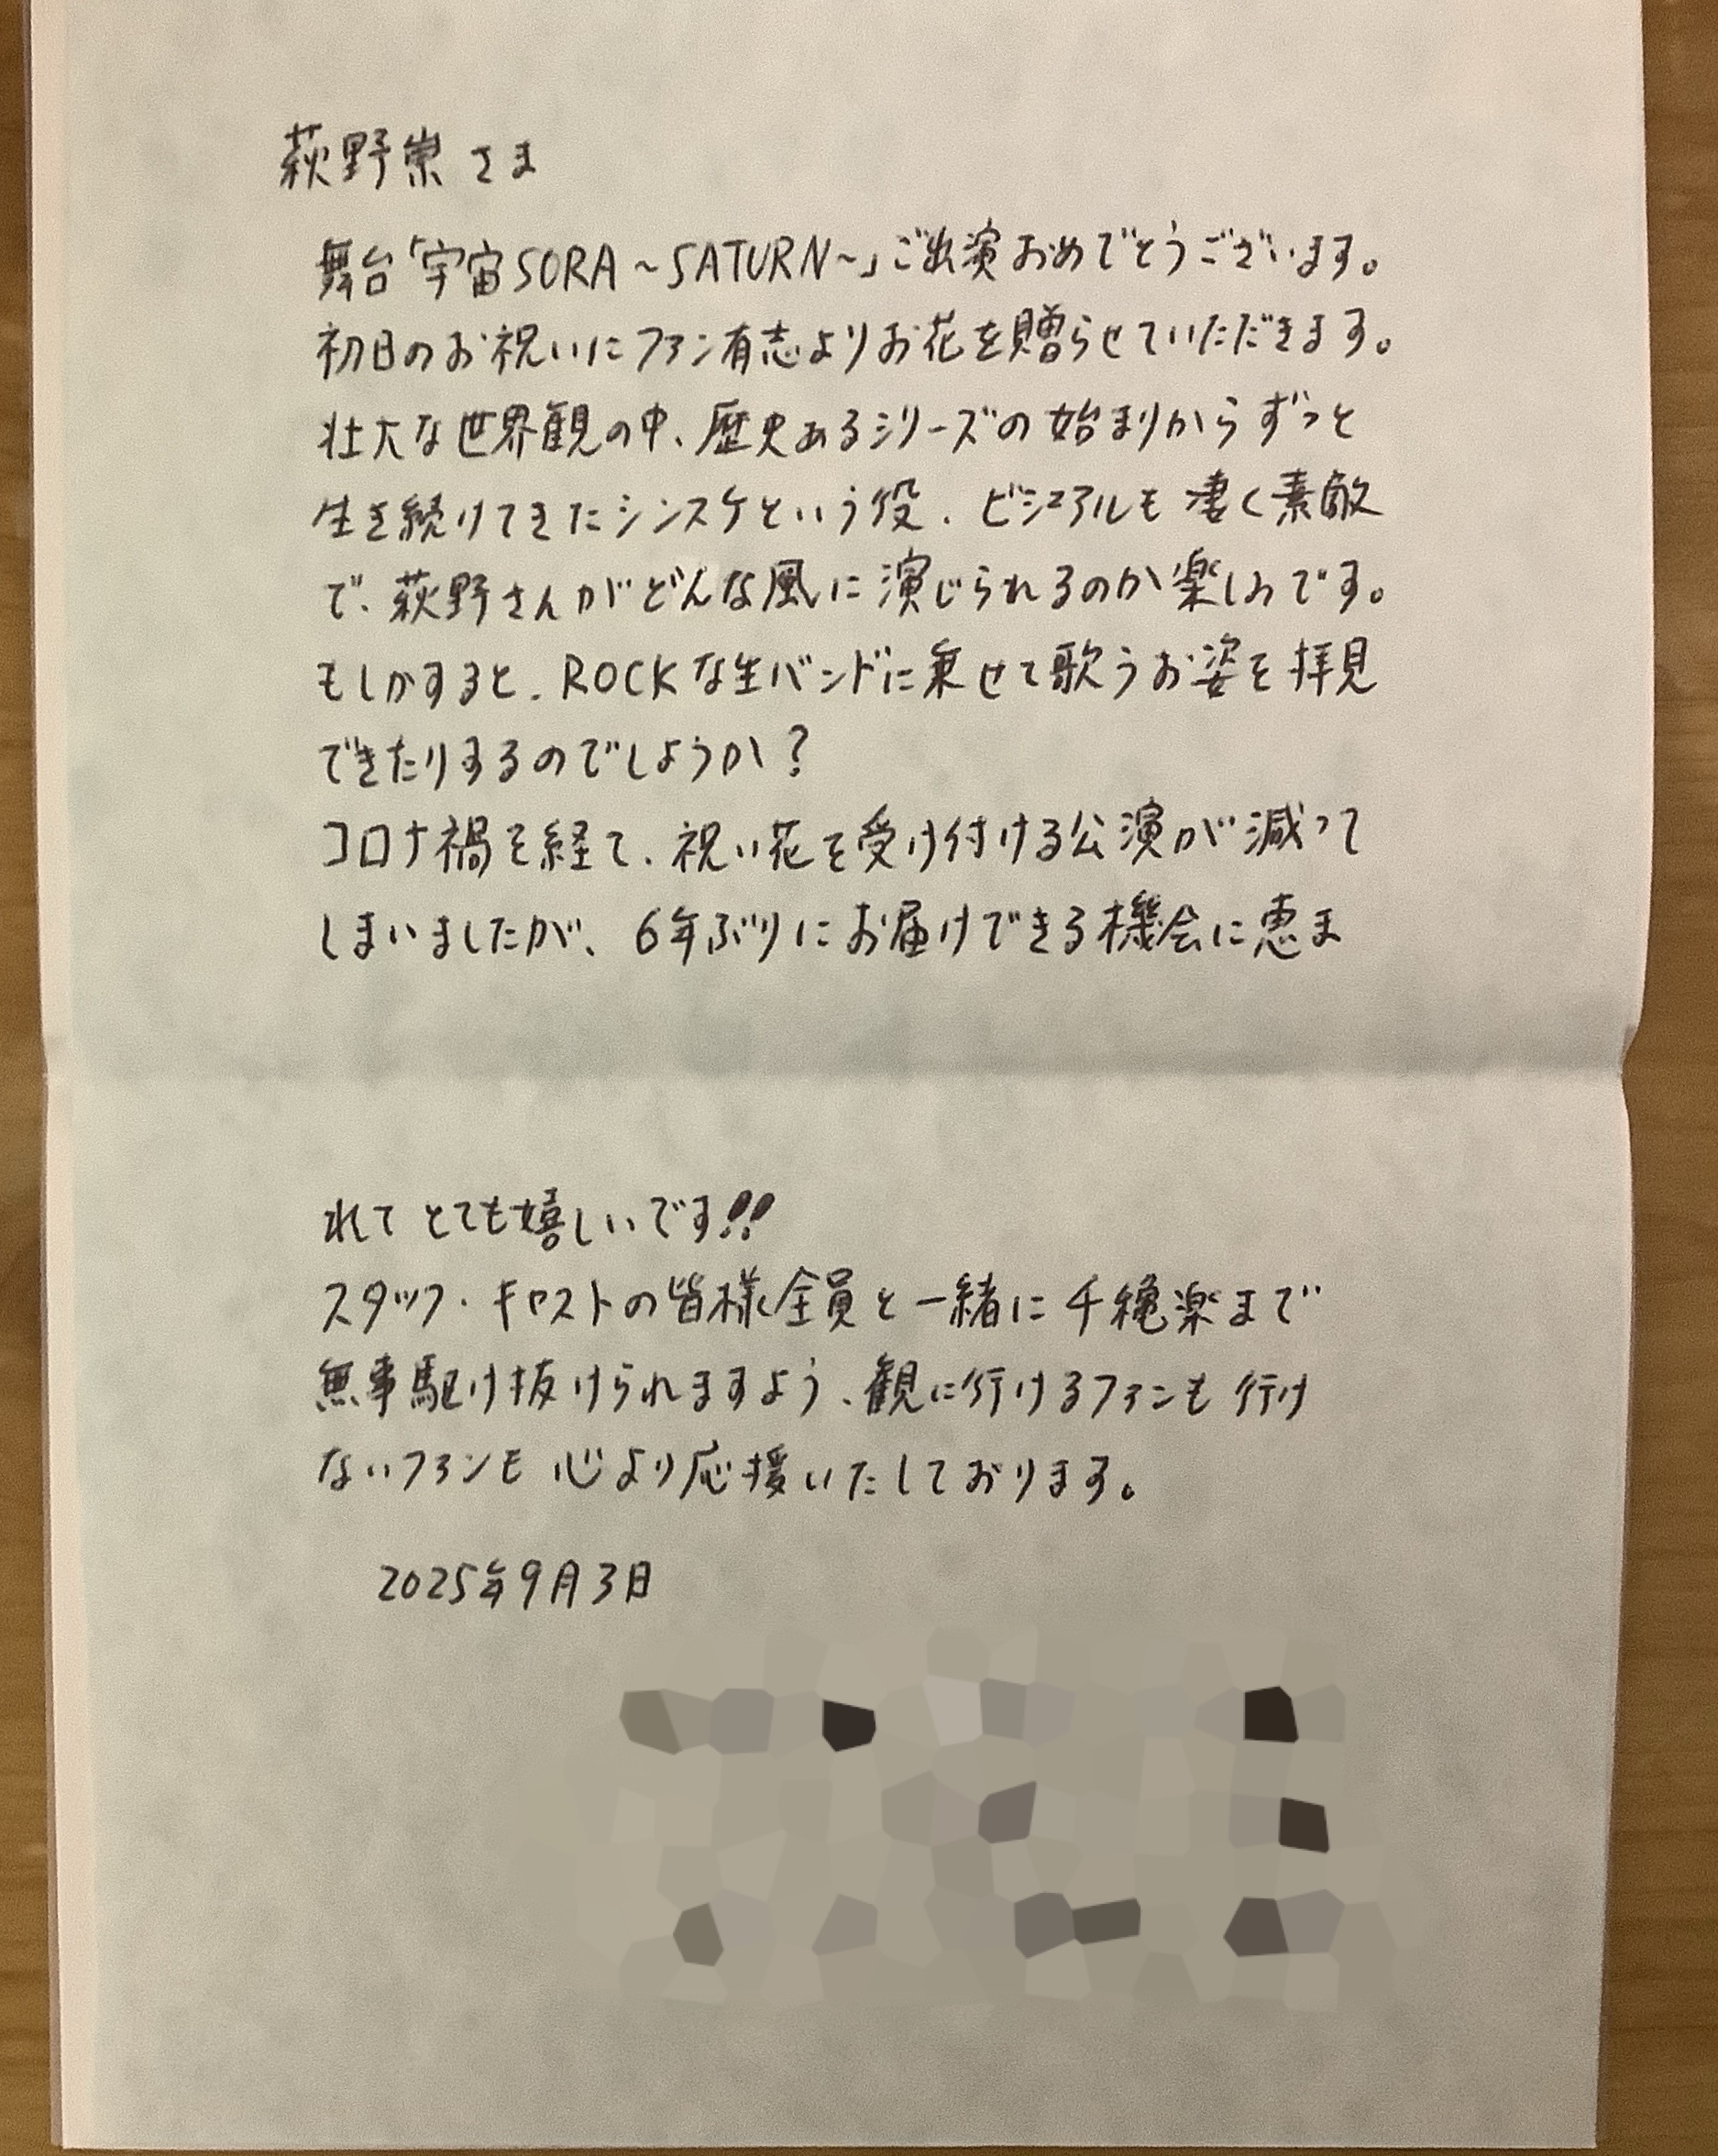 萩野崇さま
舞台「宇宙SORA～SATURN～」ご出演おめでとうございます。
初日のお祝いにファン有志よりお花を贈らせていただきます。
壮大な世界観の中、歴史あるシリーズの始まりからずっと
生き続けてきたシンスケという役、ビジュアルも凄く素敵
で、萩野さんがどんな風に演じられるのか楽しみです。
もしかすると、ROCKな生バンドに乗せて歌うお姿を拝見
できたりするのでしょうか？
コロナ禍を経て、祝い花を受け付ける公演が減って
しまいましたが、6年ぶりにお届けできる機会に恵ま
れてとても嬉しいです!!
スタッフ・キャストの皆様全員と一緒に千穐楽まで
無事駆け抜けられますよう、観に行けるファンも行け
ないファンも心より応援いたしております。
2025年9月3日